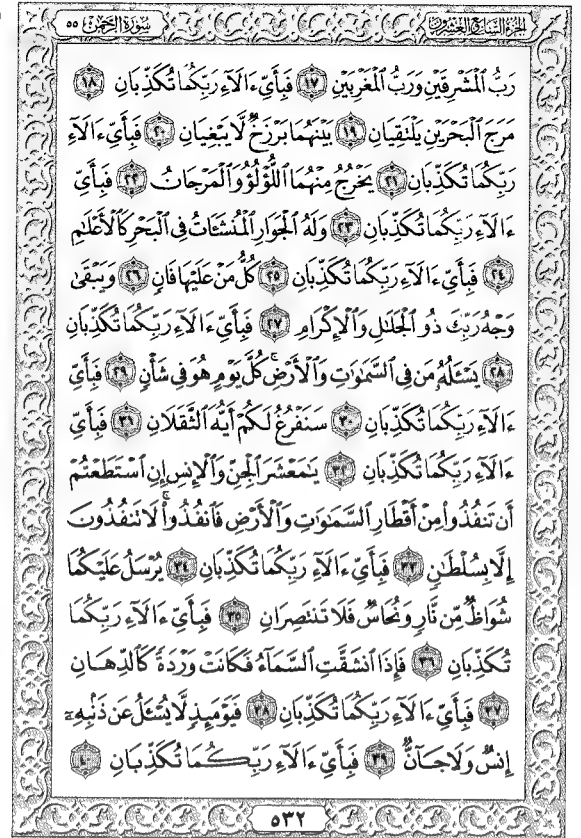 الجزء السابع والعشرون سورة الرحمن ٥٥
رَبُّ ٱلْمَشْرِقَيْنِ وَرَبُّ ٱلْمَغْرِبَيْنِ ١٧ فَبِأَيِّ ءَالَآءِ رَبِّكُمَا تُكَذِّبَانِ ١٨
مَرَجَ ٱلْبَحْرَيْنِ يَلْتَقِيَانِ ١٩ بَيْنَهُمَا بَرْزَخٌ لَّا يَبْغِيَانِ ٢٠ فَبِأَيِّ ءَالَآءِ
رَبِّكُمَا تُكَذِّبَانِ ٢١ يَخْرُجُ مِنْهُمَا ٱللُّؤْلُؤُ وَٱلْمَرْجَانُ ٢٢ فَبِأَيِّ
ءَالَآءِ رَبِّكُمَا تُكَذِّبَانِ ٢٣ وَلَهُ ٱلْجَوَارِ ٱلْمُنشَـَٔاتُ فِى ٱلْبَحْرِ كَٱلْأَعْلَٰمِ
٢٤ فَبِأَيِّ ءَالَآءِ رَبِّكُمَا تُكَذِّبَانِ ٢٥ كُلُّ مَنْ عَلَيْهَا فَانٍ ٢٦ وَيَبْقَىٰ
وَجْهُ رَبِّكَ ذُو ٱلْجَلَٰلِ وَٱلْإِكْرَامِ ٢٧ فَبِأَيِّ ءَالَآءِ رَبِّكُمَا تُكَذِّبَانِ
٢٨ يَسْـَٔلُهُۥ مَن فِى ٱلسَّمَٰوَٰتِ وَٱلْأَرْضِ ۚ كُلَّ يَوْمٍ هُوَ فِى شَأْنٍ ٢٩ فَبِأَيِّ
ءَالَآءِ رَبِّكُمَا تُكَذِّبَانِ ٣٠ سَنَفْرُغُ لَكُمْ أَيُّهَ ٱلثَّقَلَانِ ٣١ فَبِأَيِّ
ءَالَآءِ رَبِّكُمَا تُكَذِّبَانِ ٣٢ يَٰمَعْشَرَ ٱلْجِنِّ وَٱلْإِنسِ إِنِ ٱسْتَطَعْتُمْ
أَن تَنفُذُوا۟ مِنْ أَقْطَارِ ٱلسَّمَٰوَٰتِ وَٱلْأَرْضِ فَٱنفُذُوا۟ ۚ لَا تَنفُذُونَ
إِلَّا بِسُلْطَٰنٍ ٣٣ فَبِأَيِّ ءَالَآءِ رَبِّكُمَا تُكَذِّبَانِ ٣٤ يُرْسَلُ عَلَيْكُمَا
شُوَاظٌ مِّن نَّارٍ وَنُحَاسٌ فَلَا تَنتَصِرَانِ ٣٥ فَبِأَيِّ ءَالَآءِ رَبِّكُمَا
تُكَذِّبَانِ ٣٦ فَإِذَا ٱنشَقَّتِ ٱلسَّمَآءُ فَكَانَتْ وَرْدَةً كَٱلدِّهَانِ
٣٧ فَبِأَيِّ ءَالَآءِ رَبِّكُمَا تُكَذِّبَانِ ٣٨ فَيَوْمَئِذٍ لَّا يُسْـَٔلُ عَن ذَنۢبِهِۦٓ
إِنسٌ وَلَا جَآنٌّ ٣٩ فَبِأَيِّ ءَالَآءِ رَبِّكُمَا تُكَذِّبَانِ ٤٠
٥٣٢